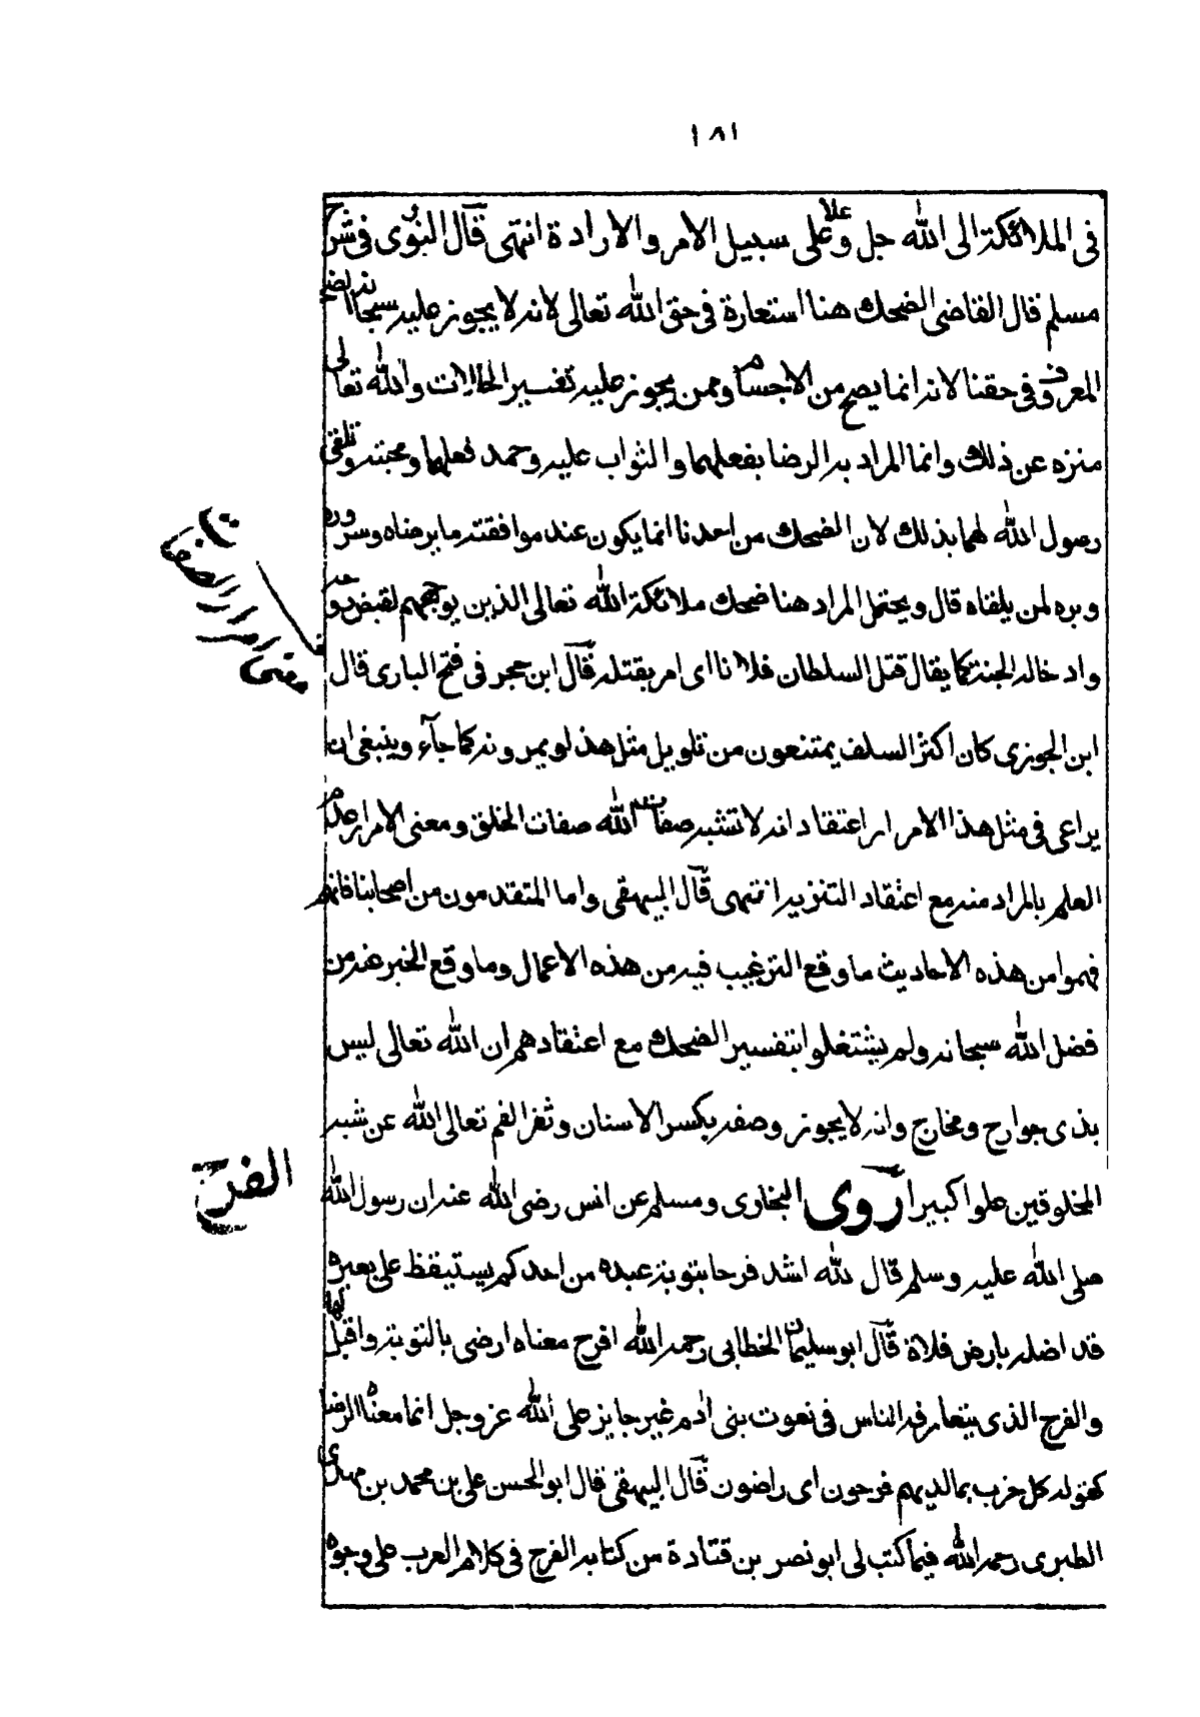 ١٨١
فى الملائكة الى الله جل وعلا على سبيل الامر والارادة انتهى قال النووى فى شرح
مسلم قال القاضى الضحك هنا استعارة فى حق الله تعالى لانه لا يجوز عليه سبحانه الضحك
المعروف فى حقنا لانه انما يصح من الاجسام وممن يجوز عليه تغيير الحالات والله تعالى
منزه عن ذلك وانما المراد به الرضا بفعلهما والثواب عليه وحمد فعلهما ومحبته وتلقى
رسول الله لهما بذلك لان الضحك من احدنا انما يكون عند موافقته ما يرضاه وسروره
وبره لمن يلقاه قال ويحتمل المراد هنا ضحك ملائكة الله تعالى الذين يوجههم لقبض روحه
وادخاله الجنة كما يقال قتل السلطان فلانا اى امر بقتله قال ابن حجر فى فتح البارى قال
معنى امرار الصفات
ابن الجوزى كان اكثر السلف يمتنعون من تاويل مثل هذا ويمرونه كما جآء وينبغى ان
يراعى فى مثل هذا الامرار اعتقاد انه لا تشبه صفات الله صفات الخلق ومعنى الامرار عدم
العلم بالمراد منه مع اعتقاد التنزيه انتهى قال البيهقى واما المتقدمون من اصحابنا فانهم
فهموا من هذه الاحاديث ما وقع الترغيب فيه من هذه الاعمال وما وقع الخبر عنه من
فضل الله سبحانه ولم يشتغلوا بتفسير الضحك مع اعتقادهم ان الله تعالى ليس
بذى جوارح ومخارج وانه لا يجوز وصفه بكسر الاسنان وثغر الفم تعالى الله عن شبه
المخلوقين علوا كبيرا روى البخارى ومسلم عن انس رضى الله عنه ان رسول الله
الفرح
صلى الله عليه وسلم قال لله اشد فرحا بتوبة عبده من احدكم يستيقظ على بعيره
قد اضله بارض فلاة قال ابو سليمان الخطابى رحمه الله افرح معناه ارضى بالتوبة واقبل لها
والفرح الذى يتعارفه الناس فى نعوت بنى ادم غير جايز على الله عز وجل انما معناه الرضا
كقوله كل حزب بما لديهم فرحون اى راضون قال البيهقى قال ابو الحسن على بن محمد بن مهدى
الطبرى رحمه الله فيما كتب لى ابو نصر بن قتادة من كتابه الفرح فى كلام العرب على وجوه